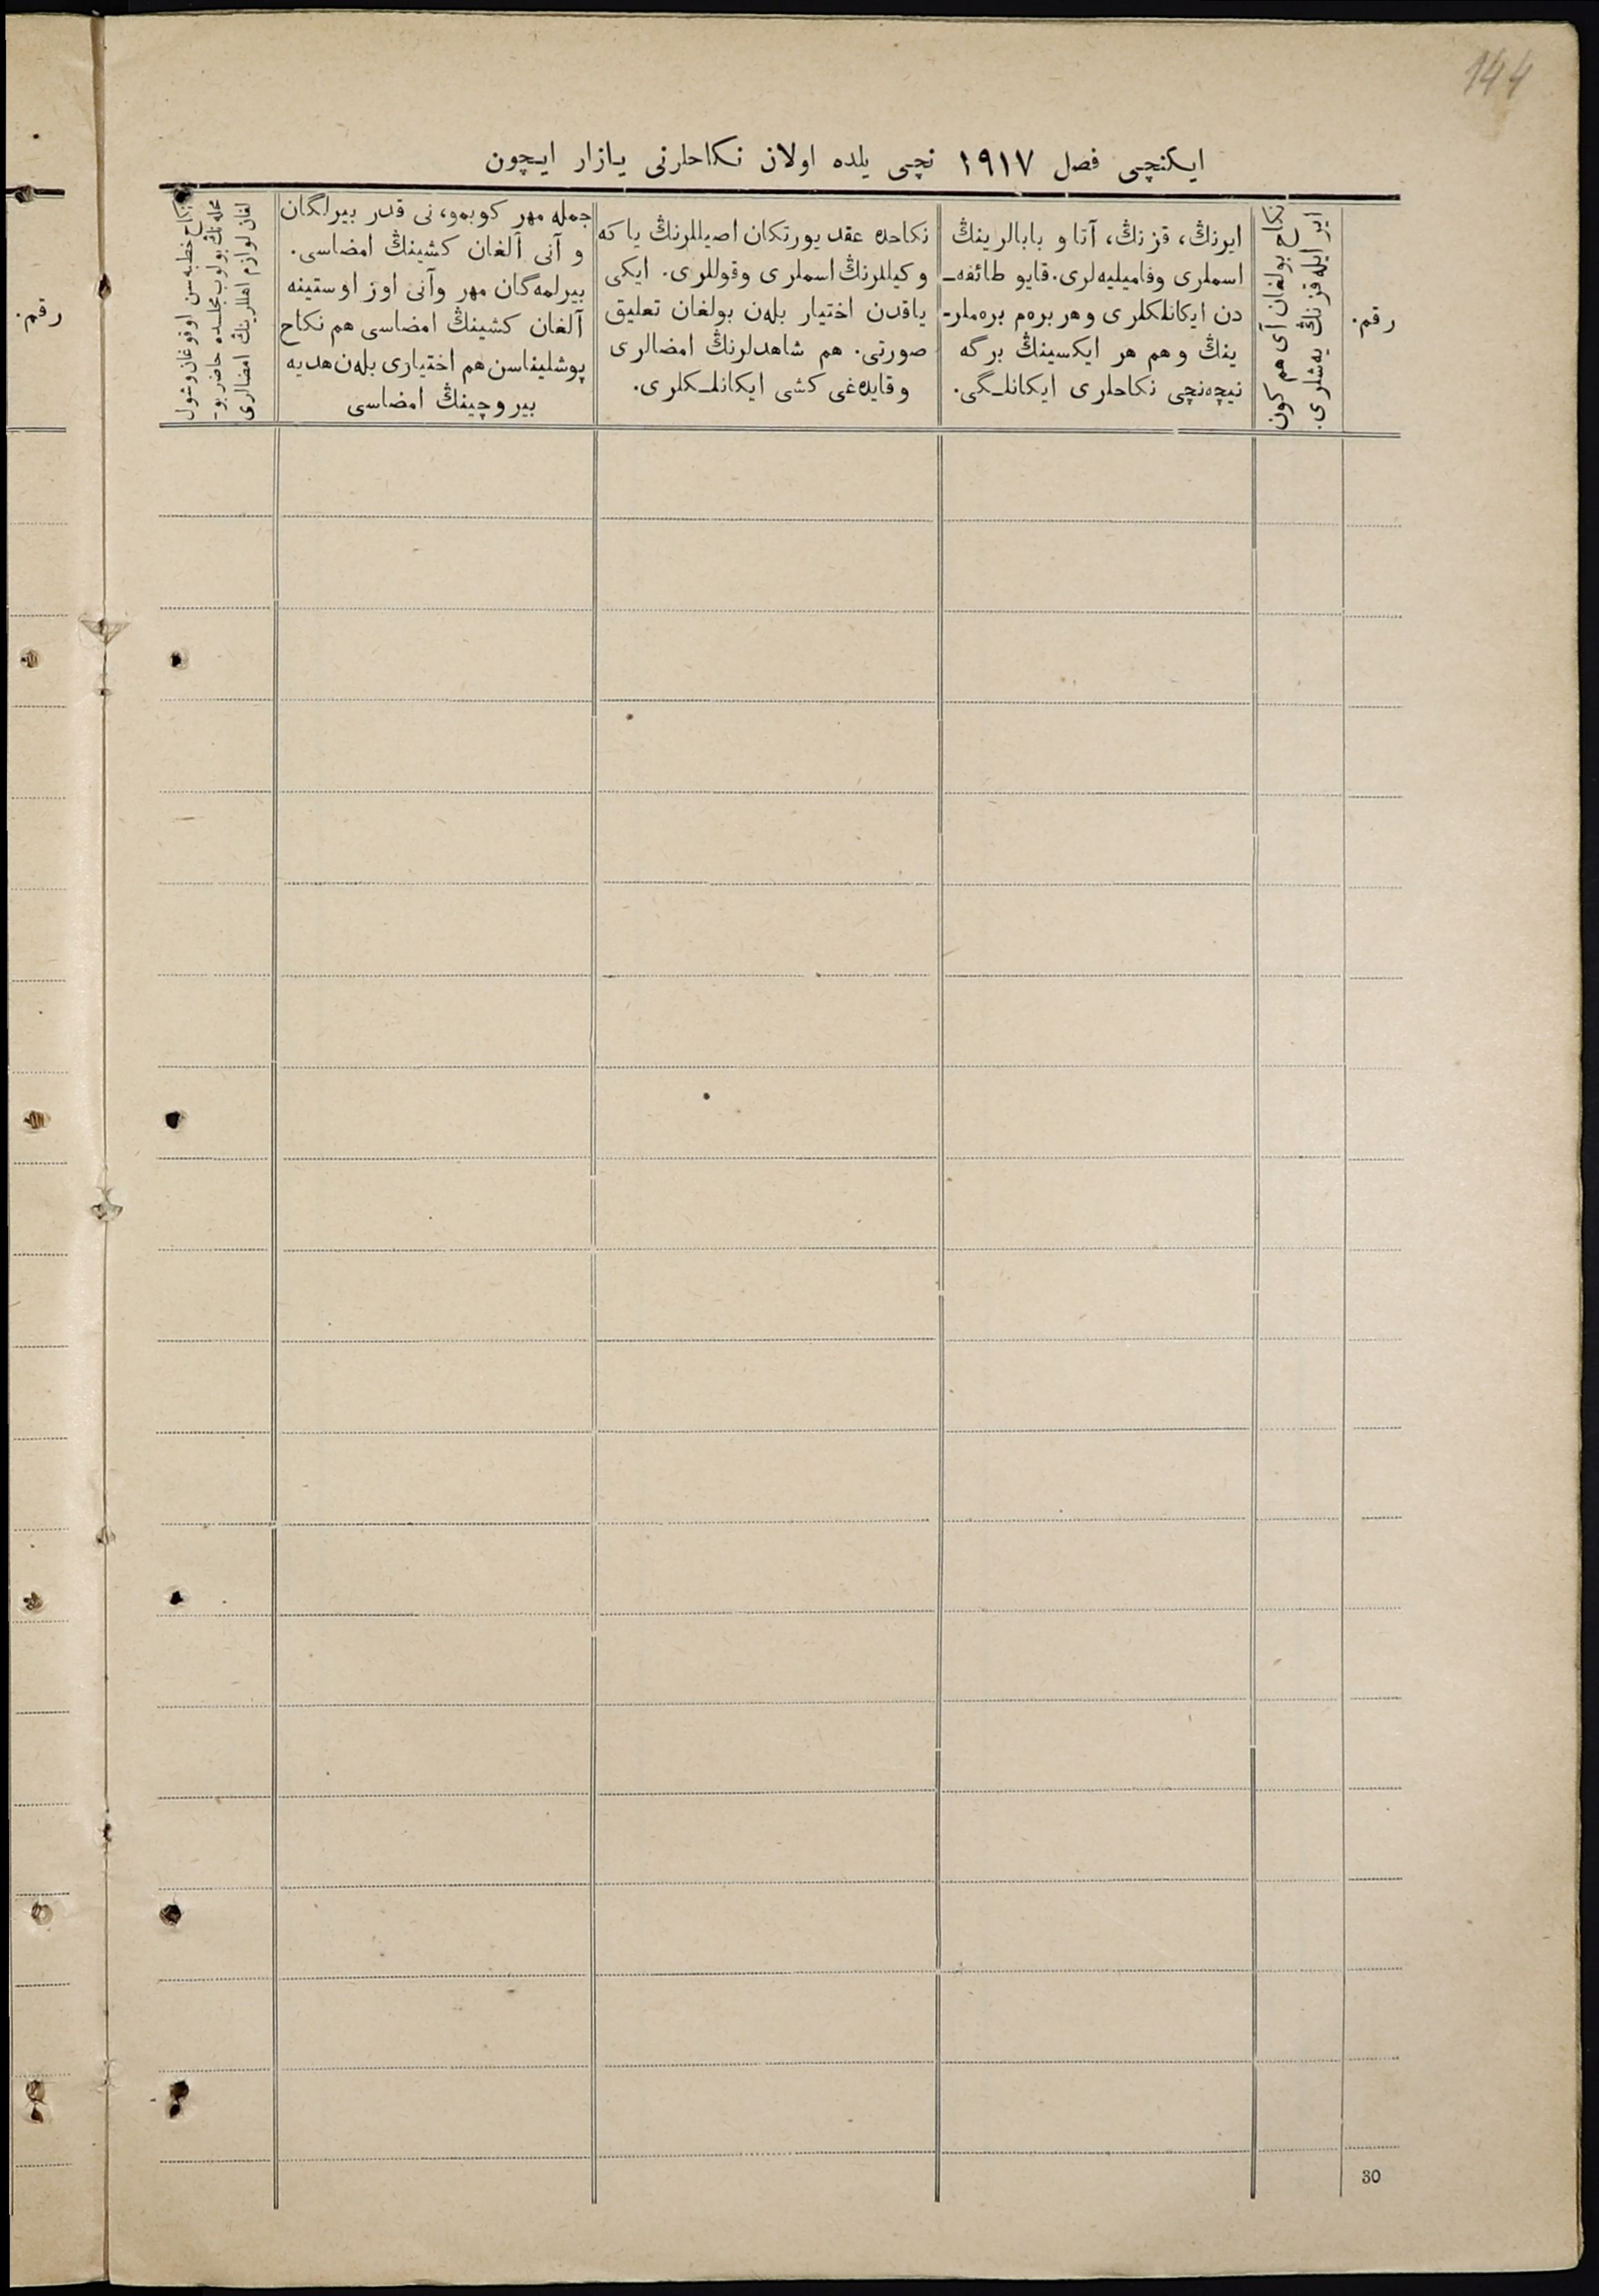 144
ایکنچی فصل ۱۹۱۷ نچی یلده اولان نکاحلرنی یازار ایچون
رقم.
نکاح بولغان آی هم کون
ایر ایله قزنڭ یه‌شلری.
ایرنڭ، قزنڭ، آتا و بابالرینڭ
اسملری وفامیلیه‌لری. قایو طائفه‌ـ
دن ایکانلکلری و هر بره‌م بره‌ملرـ
ینڭ و هم هر ایکسینڭ برگه
نیچه‌نچی نکاحلری ایکانلـگی.
نکاحده عقد یورتکان اصیللرنڭ یا که
وکیللرنڭ اسملری وقوللری. ایکی
یاقدن اختیار بله‌ن بولغان تعلیق
صورتی. هم شاهدلرنڭ امضالری
وقایده‌غی کشی ایکانلـکلری.
جمله مهر کوبمو، نی قدر بیرلگان
و آنی آلغان کشینڭ امضاسی.
بیرلمه‌گان مهر وآنی اوز اوستینه
آلغان کشینڭ امضاسی هم نکاح
پوشلیناسن هم اختیاری بله‌ن هدیه
بیروچینڭ امضاسی
نکاح خطبه‌سن اوقوغان وشول
محله‌نڭ بولوب مجلسده حاضر بوـ
لغان لوازم اهللرینڭ امضالری
رقم.
30